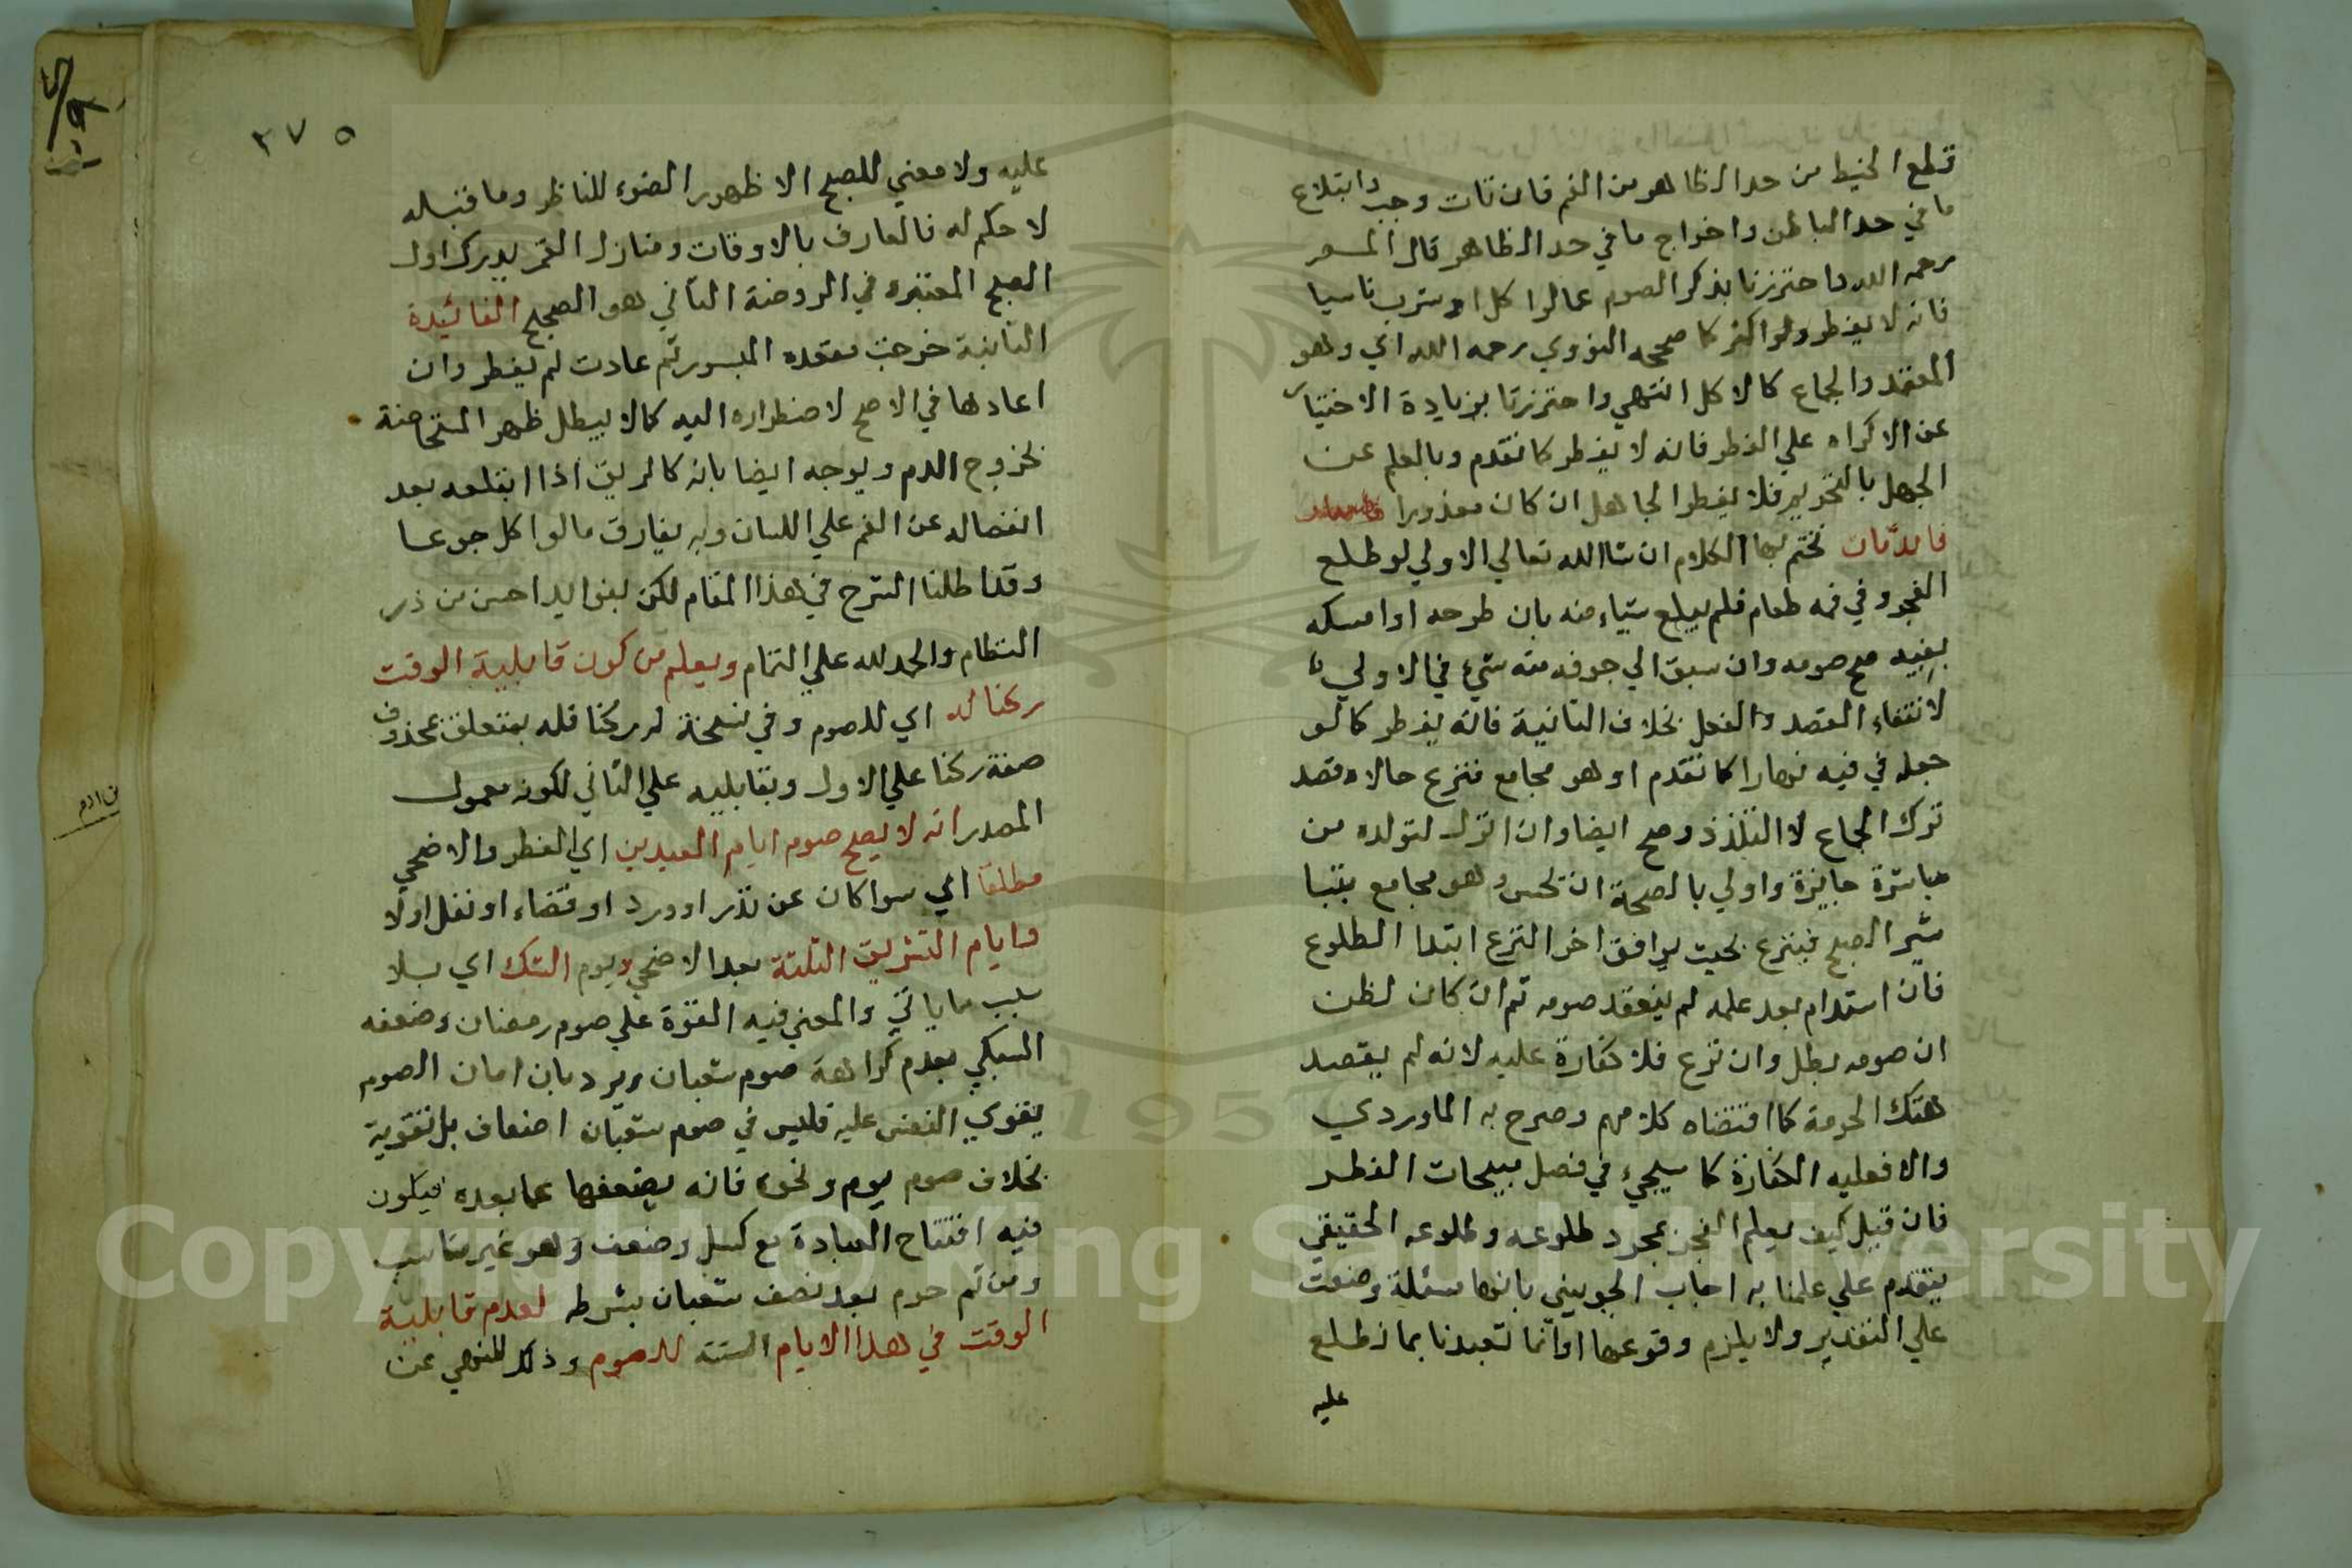 قطع الخيط من حد الظاهر من الفم فان تأت وجب وابتلاع
ما في حد الباطن واخراج ما في حد الظاهر قال
رحمه الله واحترزنا بذكر الصوم عما لو اكل او شرب ناسيا
فانه لا يفطر ولو اكثر كما صححه النووي رحمه الله اي وهو
المعتمد والجماع كالاكل انتهي واحترزنا بزيادة الاختيار
عن الاكراه علي الفطر فانه لا يفطر كما تقدم وبالعلم عن
الجهل بالتحريم فلا يفطر الجاهل ان كان معذورا
فائدتان نختم بهما الكلام ان شا الله تعالي الاولي لو طلع
الفجر وفي فمه طعام فلم يبلع شياء منه بان طرحه او امسكه
بفيه صح صومه وان سبق الي جوفه منه شيء في الاولي
لانتفاء القصد والفعل بخلاف الثانية فانه يفطر كما لو
جعله في فيه نهارا كما تقدم او هو مجامع فنزع حالا وقصد
ترك الجماع لا التلذذ وصح ايضا وان انزل لتولده من
مباشرة جايزة واولي بالصحة ان يحس وهو مجامع بتبا
شير الصبح فينزع بحيث يوافق اخر النزع ابتدا الطلوع
فان استدام بعد علمه لم ينعقد صومه ثم ان كان لظن
ان صومه بطل وان نزع فلا كفارة عليه لانه لم يقصد
هتك الحرمة كما اقتضاه كلامهم وصرح به الماوردي
والا فعليه الكفارة كما سيجيء في فصل مبيحات الفطر
فان قيل كيف يعلم الفجر بمجرد طلوعه وطلوعه الحقيقي
يتقدم علي علمنا به اجاب الجويني بانها مسئلة وضعت
علي التقدير ولا يلزم وقوعها او انما تعبدنا بما نطلع
عليه
٣٧٥
عليه ولا معني للصبح الا ظهور الضوء للناظر وما قبله
لا حكم له فالعارف بالاوقات ومنازل القمر يدرك اول
الصبح المعتبره في الروضة الثاني هو الصحيح الفائيدة
الثانية خرجت مقعده المبسور ثم عادت لم يفطر وان
اعادها في الاصح لاضطراره اليه كما لا يبطل طهر المستحاضة
بخروج الدم ويوجه ايضا بانه كالريق اذا ابتلعه بعد
انفصاله عن الفم علي اللسان وبه يفارق ما لو اكل جوعا
وقد اطلنا الشرح في هذا المقام لكن بفوايد احسن من در
النظام والحمد لله علي التمام ويعلم من كون قابلية الوقت
ركنا له اي للصوم وفي نسخة له ركنا فله بمتعلق بمحذوف
صفة ركنا علي الاول وبقابليه علي الثاني لكونه معمول
المصدر انه لا يصح صوم ايام العيدين اي الفطر والاضحي
مطلقا اي سوا كان عن نذر او ورد او قضاء او نفل اولا
وايام التشريق الثلثة بعد الاضحي ويوم الشك اي بلا
سبب ما ياتي والمعني فيه القوة علي صوم رمضان وضعفه
السبكي بعدم كراهة صوم شعبان ويرد بان ادمان الصوم
يقوي النفس عليه فليس في صوم شعبان اضعاف بل تقوية
بخلاف صوم يوم ونحوه فانه يضعفها عما بعده فيكون
فيه افتتاح العبادة مع كسل وضعف وهو غير مناسب
ومن ثم حرم بعد نصف شعبان بشرطه لعدم قابلية
الوقت في هذا الايام الستة للصوم وذلك للنهي عن
Copyright © King Saud University
1957